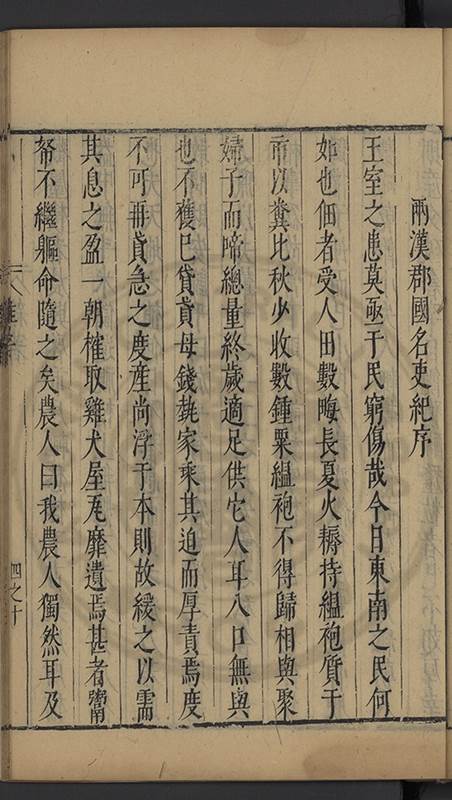 兩漢郡國名吏紀序
王室之患莫亟于民窮傷哉今日東南之民何
如也佃者受人田數畮長夏火耨持縕袍質于
市以糞比秋少收數鍾粟縕袍不得歸相與聚
婦子而啼總量終歲適足供它人耳八口無與
也不獲已貸貣母錢埶家乘其迫而厚責焉度
不可再貸急之度產尚浮于本則故緩之以需
其息之盈一朝榷取雞犬屋瓦靡遺焉甚者鬻
帑不繼軀命隨之矣農人曰我農人獨然耳及
四之十